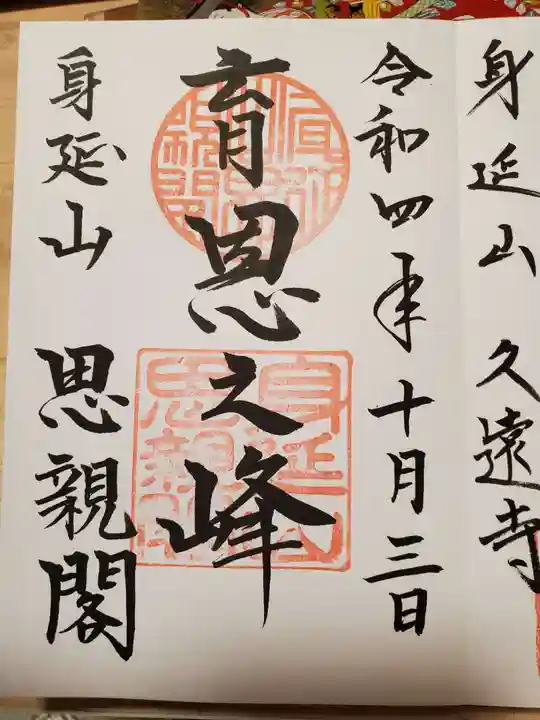 身延山 久遠寺
令和四年十月三日
育恩之峰
身延山 思親閣
身延山
思親閣